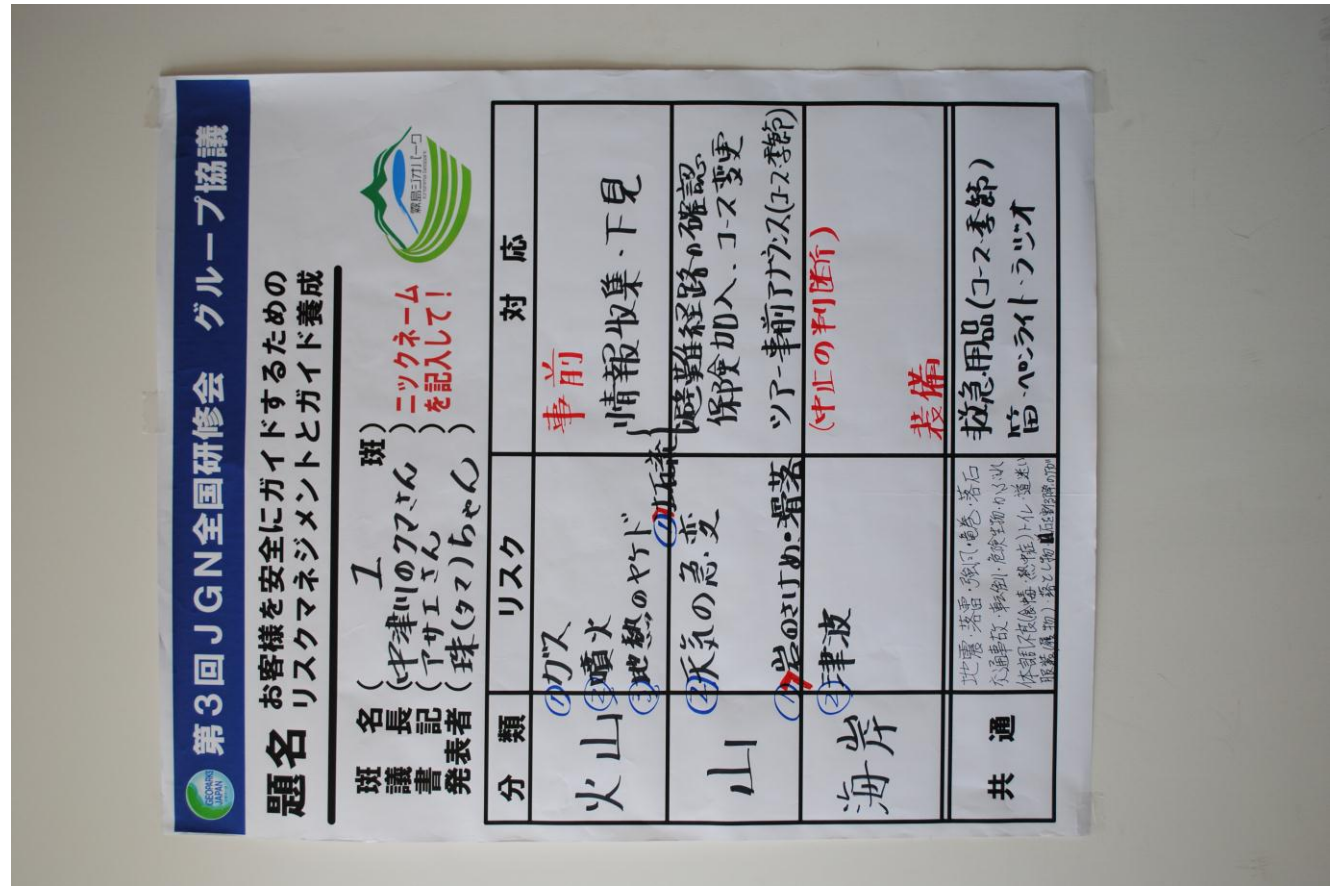 GEOPARKS JAPAN
第3回JGN全国研修会　グループ協議
題名 お客様を安全にガイドするための
リスクマネジメントとガイド養成
班名（　1　班）
議長（中津川のクマさん）
書記（アサエさん）
発表者（珠(タマ)ちゃん）
ニックネーム
を記入して！
霧島ジオパーク
分類　リスク　対応
火山
①ガス
②噴火
③地熱のヤケド
事前
情報収集・下見
山
①土石流
②天気の急変
避難経路の確認
保険加入、コース変更
ツアー事前アナウンス(コース・季節)
海岸
①岩のさけめ・滑落
②津波
(中止の判断)
装備
共通
地震・落雷・強風・竜巻・落石
交通事故・転倒・危険生物・かぶれ
体調不良(食事・熱中症)トイレ・道迷い
救急用品(コース・季節)
笛・ペンライト・ラジオ